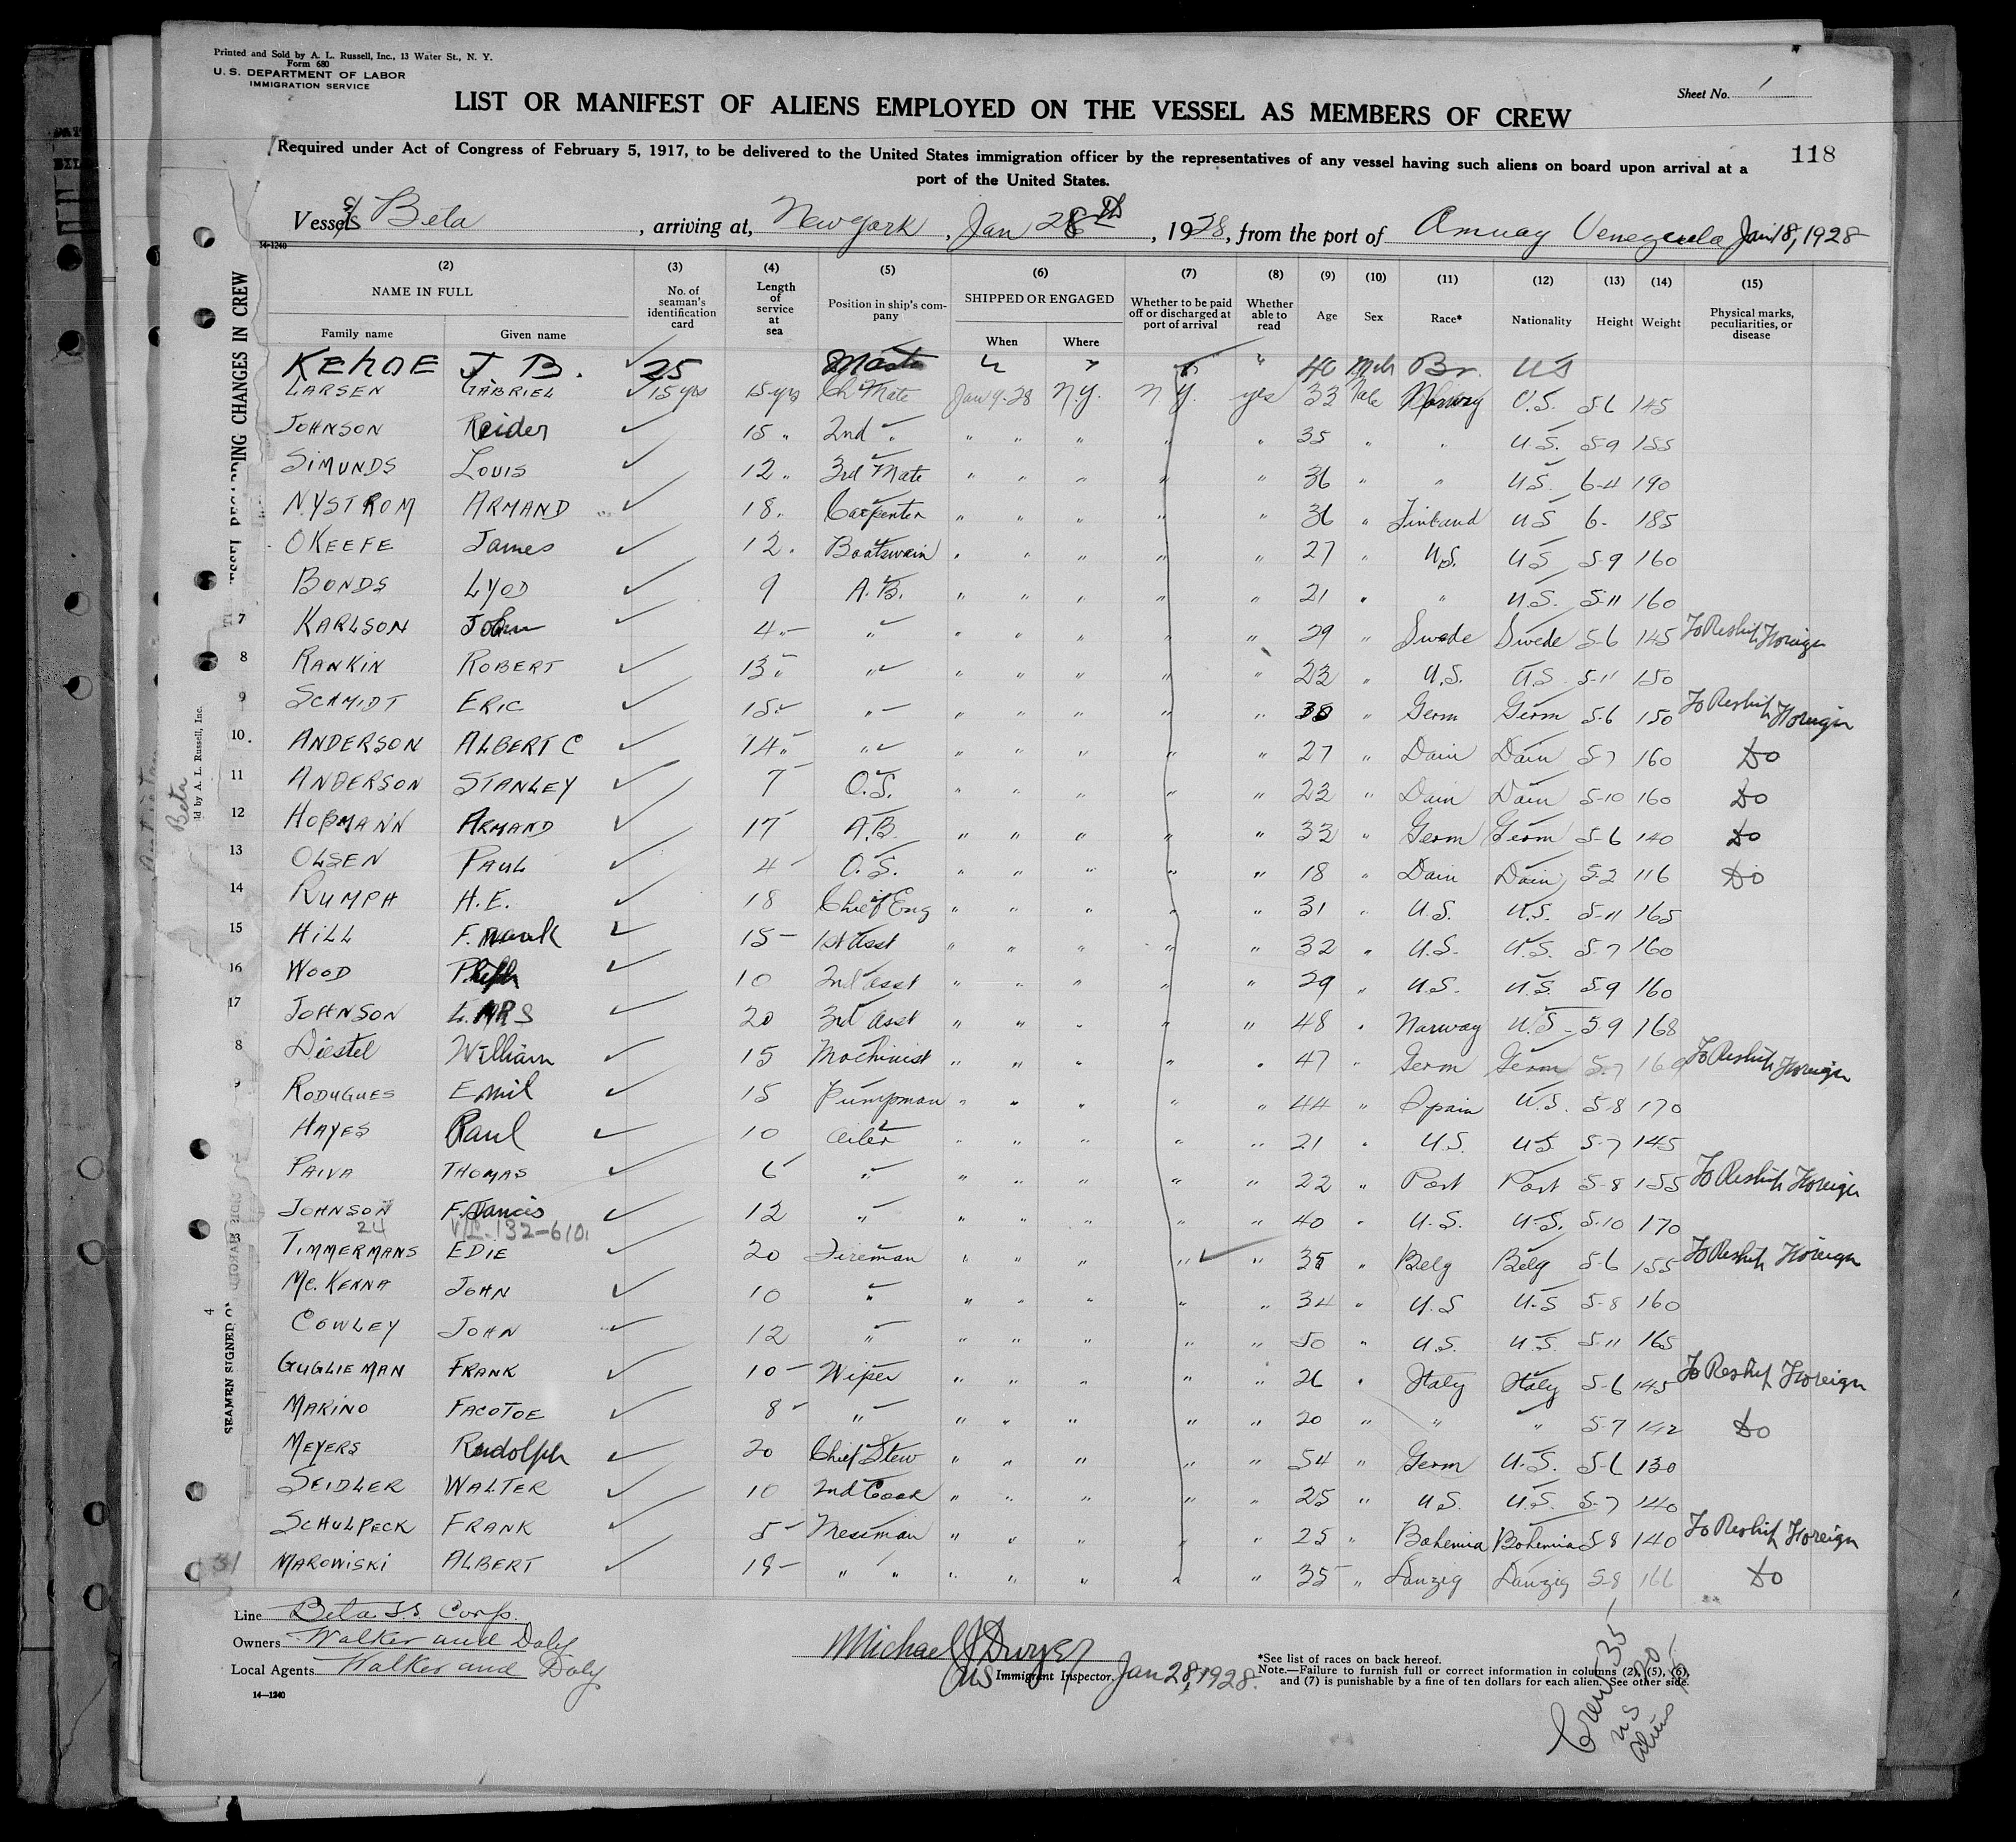 Printed and Sold by A. L. Russell, Inc., 13 Water St., N. Y.
Form 680
U. S. DEPARTMENT OF LABOR
IMMIGRATION SERVICE
Sheet No. 1
LIST OR MANIFEST OF ALIENS EMPLOYED ON THE VESSEL AS MEMBERS OF CREW
118
Required under Act of Congress of February 5, 1917, to be delivered to the United States immigration officer by the representatives of any vessel having such aliens on board upon arrival at a
port of the United States.
Vessel S/S Beta, arriving at, New York, Jan 28th, 1928, from the port of Amuay Venezuela Jan 18, 1928
14-1240
(2) (3) (4) (5) (6) (7) (8) (9) (10) (11) (12) (13) (14) (15)
NAME IN FULL No. of seaman's identification card Length of service at sea Position in ship's company SHIPPED OR ENGAGED Whether to be paid off or discharged at port of arrival Whether able to read Age Sex Race* Nationality Height Weight Physical marks, peculiarities, or disease
Family name Given name When Where
KEHOE J. B. 25 Master " " " 40 Male Br. US
LARSEN GABRIEL 15 yrs 15 yrs Ch Mate Jan 9-28 N.Y. N.Y. yes 33 Male Norway U.S. 5-6 145
JOHNSON Reider 15 " 2nd " " " " " " 35 " " U.S. 5-9 155
SIMUNDS LOUIS 12 " 3rd Mate " " " " " 36 " " US 6-4 190
NYSTROM ARMAND 18 " Carpenter " " " " " 36 " Finland US 6- 185
OKEEFE James 12 " Boatswain " " " " " 27 " U.S. US 5-9 160
BONDS LYOD 9 A.B. " " " " " 21 " " U.S. 5-11 160
7 KARLSON John 4 " " " " " " " 29 " Swede Swede 5-6 145 To Reship Foreign
8 RANKIN ROBERT 13 " " " " " " " 23 " U.S. U.S 5-11 150
9 SCHMIDT ERIC 15 " " " " " " 38 " Germ Germ 5-6 150 To Reship Foreign
10. ANDERSON ALBERT C 14 " " " " " " " 27 " Dain Dain 5-7 160 Do
11 ANDERSON STANLEY 7 O.S. " " " " " 23 " Dain Dain 5-10 160 Do
12 HOFMANN ARMAND 17 A.B. " " " " " 33 " Germ Germ 5-6 140 Do
13 OLSEN PAUL 4 O.S. " " " " " 18 " Dain Dain 5-2 116 Do
14 RUMPH H.E. 18 Chief Eng " " " " " 31 " U.S. U.S. 5-11 165
15 HILL Frank 15 1st Asst " " " " " 32 " U.S. U.S. 5-7 160
16 WOOD 10 2nd Asst " " " " " 29 " U.S. U.S. 5-9 160
17 JOHNSON LARS 20 3rd Asst " " " " " 48 " Norway U.S 5-9 168
8 Diestel William 15 Machinist " " " " " 47 " Germ Germ 5-7 160 To Reship Foreign
9 RODUGUES Emil 15 Pumpman " " " " " 44 " Spain U.S. 5-8 170
HAYES Paul 10 Oiler " " " " " 21 " U.S. US 5-7 145
PAIVA THOMAS 6 " " " " " " 22 " Port Port 5-8 155 To Reship Foreign
JOHNSON Francis 12 " " " " " " 40 " U.S. U.S. 5-10 170
24 V/L-132-610
3 TIMMERMANS EDIE 20 Fireman " " " " " 35 " Belg Belg 5-6 155 To Reship Foreign
Mc. KENNA JOHN 10 " " " " " " 34 " U.S U.S 5-8 160
COWLEY JOHN 12 " " " " " " 50 " U.S. U.S. 5-11 165
GUGLIEMAN FRANK 10 Wiper " " " " " 26 " Italy Italy 5-6 145 To Reship Foreign
MARINO FACOTOE 8 " " " " " " 20 " " " 5-7 142 Do
MEYERS Rudolph 20 Chief Stew " " " " " 54 " Germ U.S. 5-6 130
SEIDLER WALTER 10 2nd Cook " " " " " 25 " U.S. U.S. 5-7 140
SCHULPECK FRANK 5 Messman " " " " " 25 " Bohemia Bohemia 5-8 140 To Reship Foreign
31 MAROWISKI ALBERT 18 " " " " " " " 35 " Danzig Danzig 5-8 166 Do
Line Beta SS Corp.
Owners Walker and Daly
Local Agents Walker and Daly
14—1240
Michael J Dwyer
Immigrant Inspector. Jan 28, 1928.
*See list of races on back hereof.
Note.—Failure to furnish full or correct information in columns (2), (5), (6),
and (7) is punishable by a fine of ten dollars for each alien. See other side.
Crew 35
US 20
Aliens 15
Beta
ld by A. L. Russell, Inc.
SEAMEN SIGNED